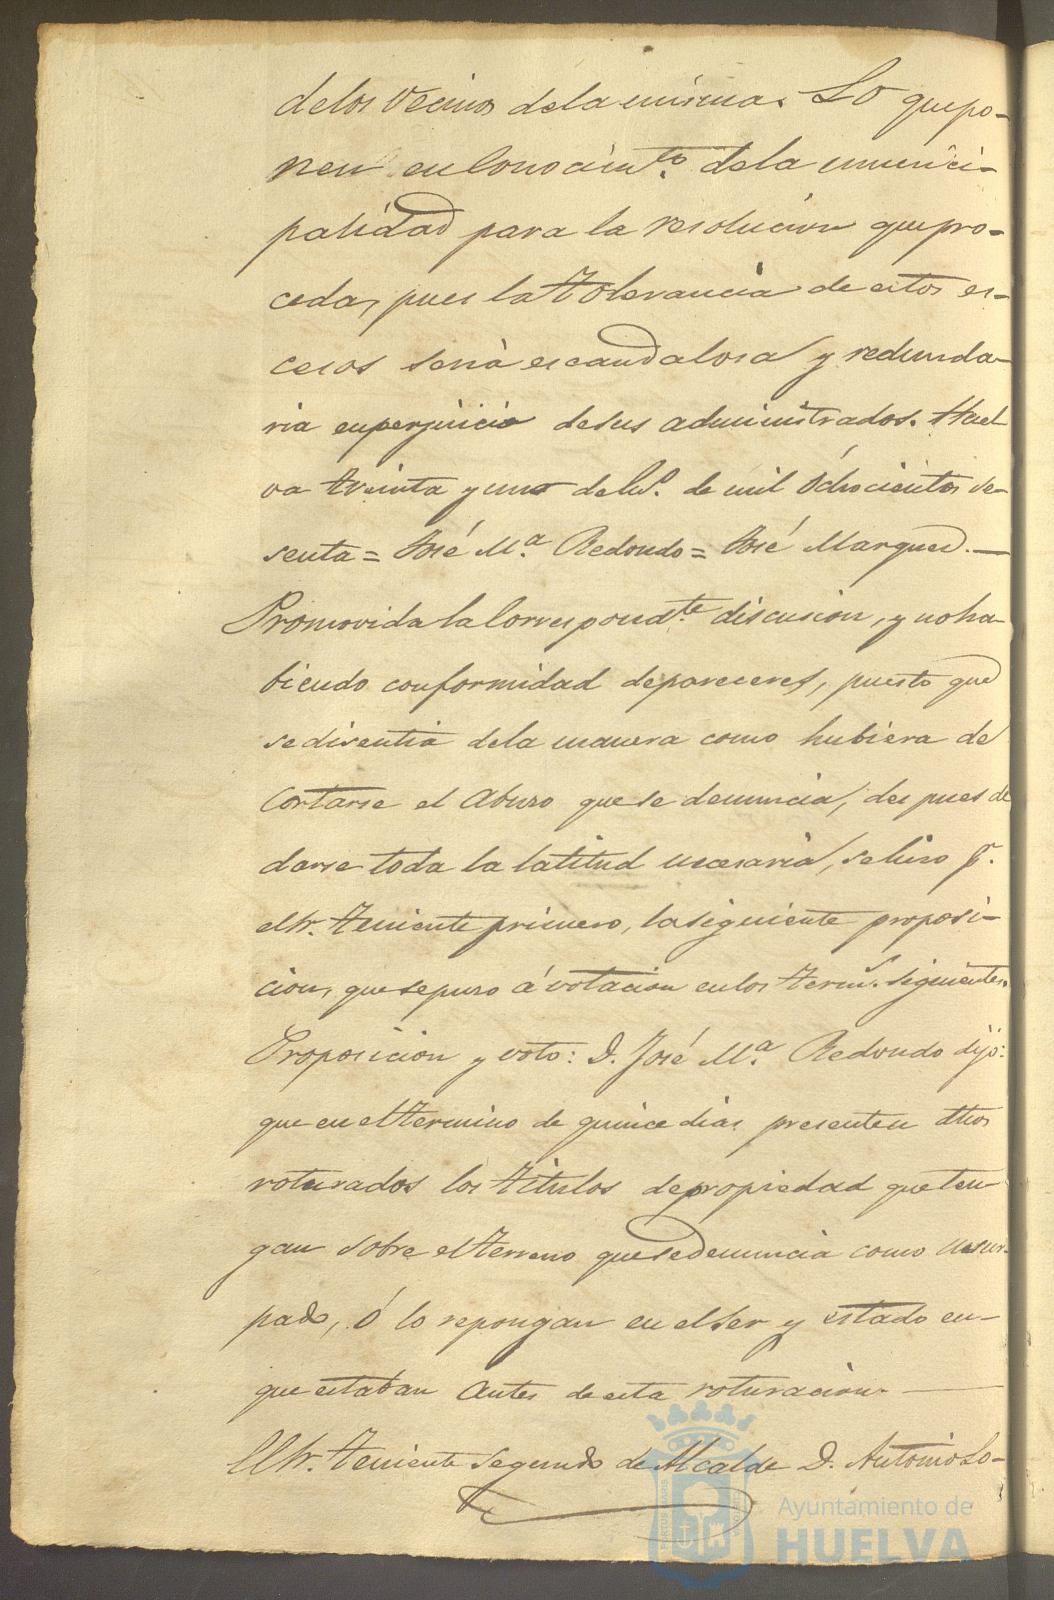 de los Vecinos de la misma. Lo que po-
nen en Conocim.to de la munici-
palidad para la resolucion que pro-
ceda, pues la tolerancia de estos es-
cesos seria escandalosa y redunda-
ria en perjuicio de sus administrados. Huel
va treinta y uno de de mil Ochocientos se-
senta = José M.a Redondo = José Marquez.—
Promovida la Correspond.te discusion, y no ha-
biendo conformidad de pareceres, puesto que
se disentia de la manera como hubiera de
Cortarse el Abuso que se denuncia, despues de
darse toda la latitud necesaria, se hiso p.r
el Sr. Teniente primero, la siguiente proposi-
cion, que se puso á votacion en los term.s siguientes.
Proposicion y voto: D. José M.a Redondo dijo:
que en el termino de quince dias presenten dhos
roturados los titulos de propiedad que ten-
gan sobre el terreno que se denuncia como usur-
pado, ó lo repongan en el ser y estado en-
que estaban Antes de esta roturacion.—
El Sr. Teniente Segundo de Alcalde D. Antonio Lo-
Ayuntamiento de
HUELVA